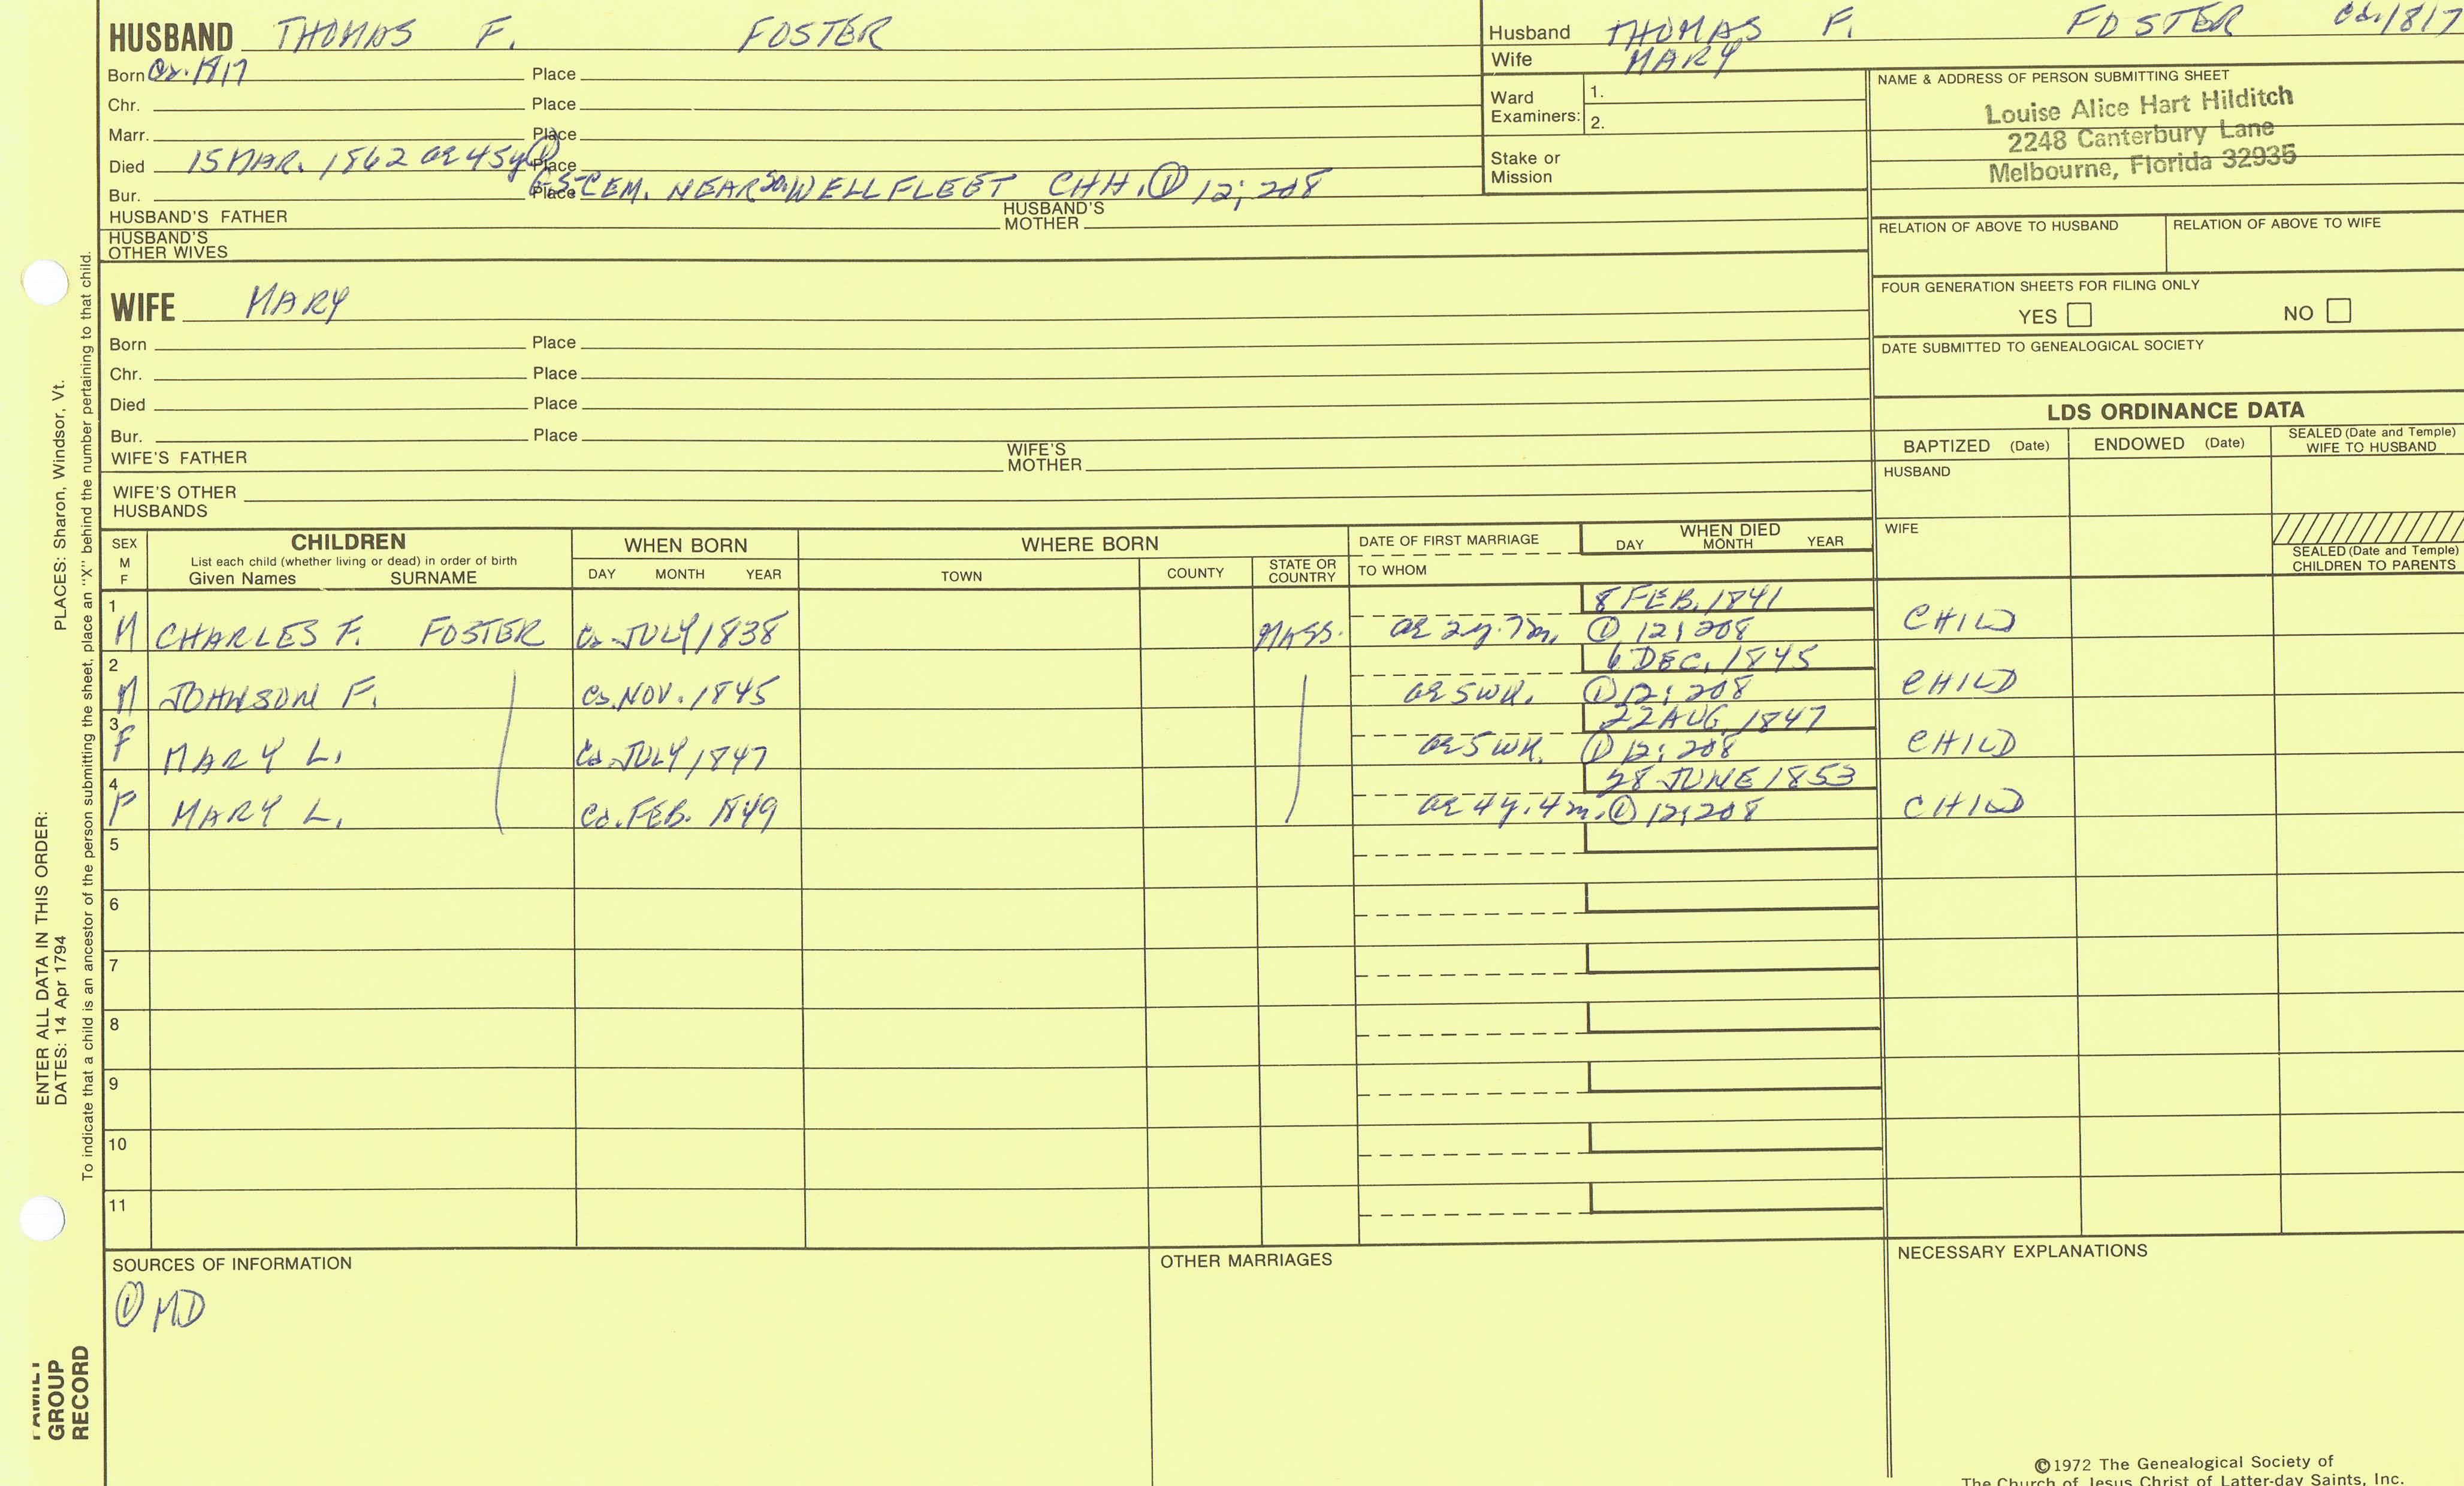 HUSBAND THOMAS F. FOSTER
Born Ca. 1817 Place
Chr. Place
Marr. Place
Died 15 MAR. 1862 ae 45y ① Place
Bur. Place CEM. NEAR SO. WELLFLEET CHH. ① 12; 208
HUSBAND'S FATHER HUSBAND'S MOTHER
HUSBAND'S OTHER WIVES
Husband THOMAS F. FOSTER Ca. 1817
Wife MARY
Ward Examiners: 1.
2.
Stake or Mission
NAME & ADDRESS OF PERSON SUBMITTING SHEET
Louise Alice Hart Hilditch
2248 Canterbury Lane
Melbourne, Florida 32935
RELATION OF ABOVE TO HUSBAND RELATION OF ABOVE TO WIFE
FOUR GENERATION SHEETS FOR FILING ONLY
YES NO
DATE SUBMITTED TO GENEALOGICAL SOCIETY
WIFE MARY
Born Place
Chr. Place
Died Place
Bur. Place
WIFE'S FATHER WIFE'S MOTHER
WIFE'S OTHER HUSBANDS
LDS ORDINANCE DATA
BAPTIZED (Date) ENDOWED (Date) SEALED (Date and Temple) WIFE TO HUSBAND
HUSBAND
WIFE
SEALED (Date and Temple) CHILDREN TO PARENTS
SEX M F
CHILDREN
List each child (whether living or dead) in order of birth
Given Names SURNAME
WHEN BORN
DAY MONTH YEAR
WHERE BORN
TOWN COUNTY STATE OR COUNTRY
DATE OF FIRST MARRIAGE
TO WHOM
WHEN DIED
DAY MONTH YEAR
1 8 FEB. 1841
M CHARLES F. FOSTER Ca. JULY 1838 MASS. ae 2y. 7m. ① 12; 208 CHILD
2 6 DEC. 1845
M JOHNSON F. Ca. NOV. 1845 ae 5 wk. ① 12; 208 CHILD
3 22 AUG. 1847
F MARY L. Ca. JULY 1847 ae 5 wk. ① 12; 208 CHILD
4 28 JUNE 1853
F MARY L. Ca. FEB. 1849 ae 4y. 4m. ① 12; 208 CHILD
5
6
7
8
9
10
11
SOURCES OF INFORMATION
① MD
OTHER MARRIAGES
NECESSARY EXPLANATIONS
©1972 The Genealogical Society of
The Church of Jesus Christ of Latter-day Saints, Inc.
PLACES: Sharon, Windsor, Vt.
ENTER ALL DATA IN THIS ORDER:
DATES: 14 Apr 1794
To indicate that a child is an ancestor of the person submitting the sheet, place an "X" behind the number pertaining to that child.
FAMILY
GROUP
RECORD